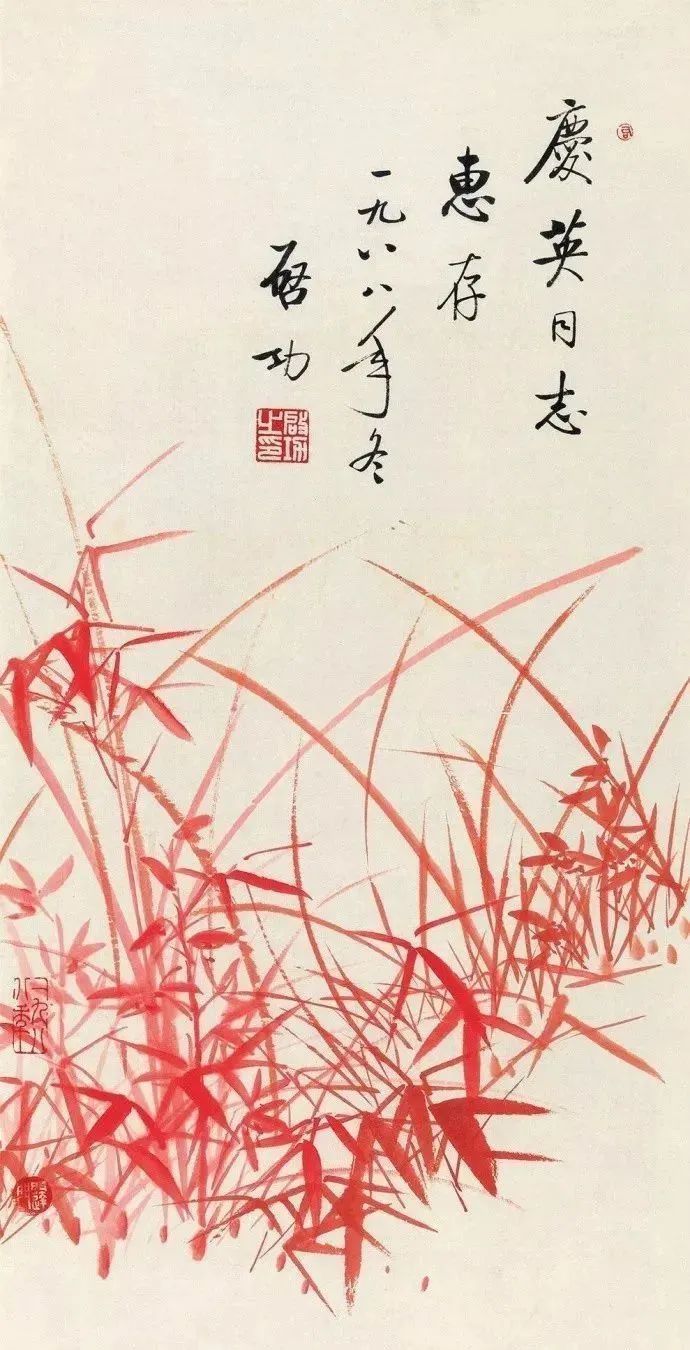 慶英同志
惠存
一九八八年冬
啓功
啟功之印